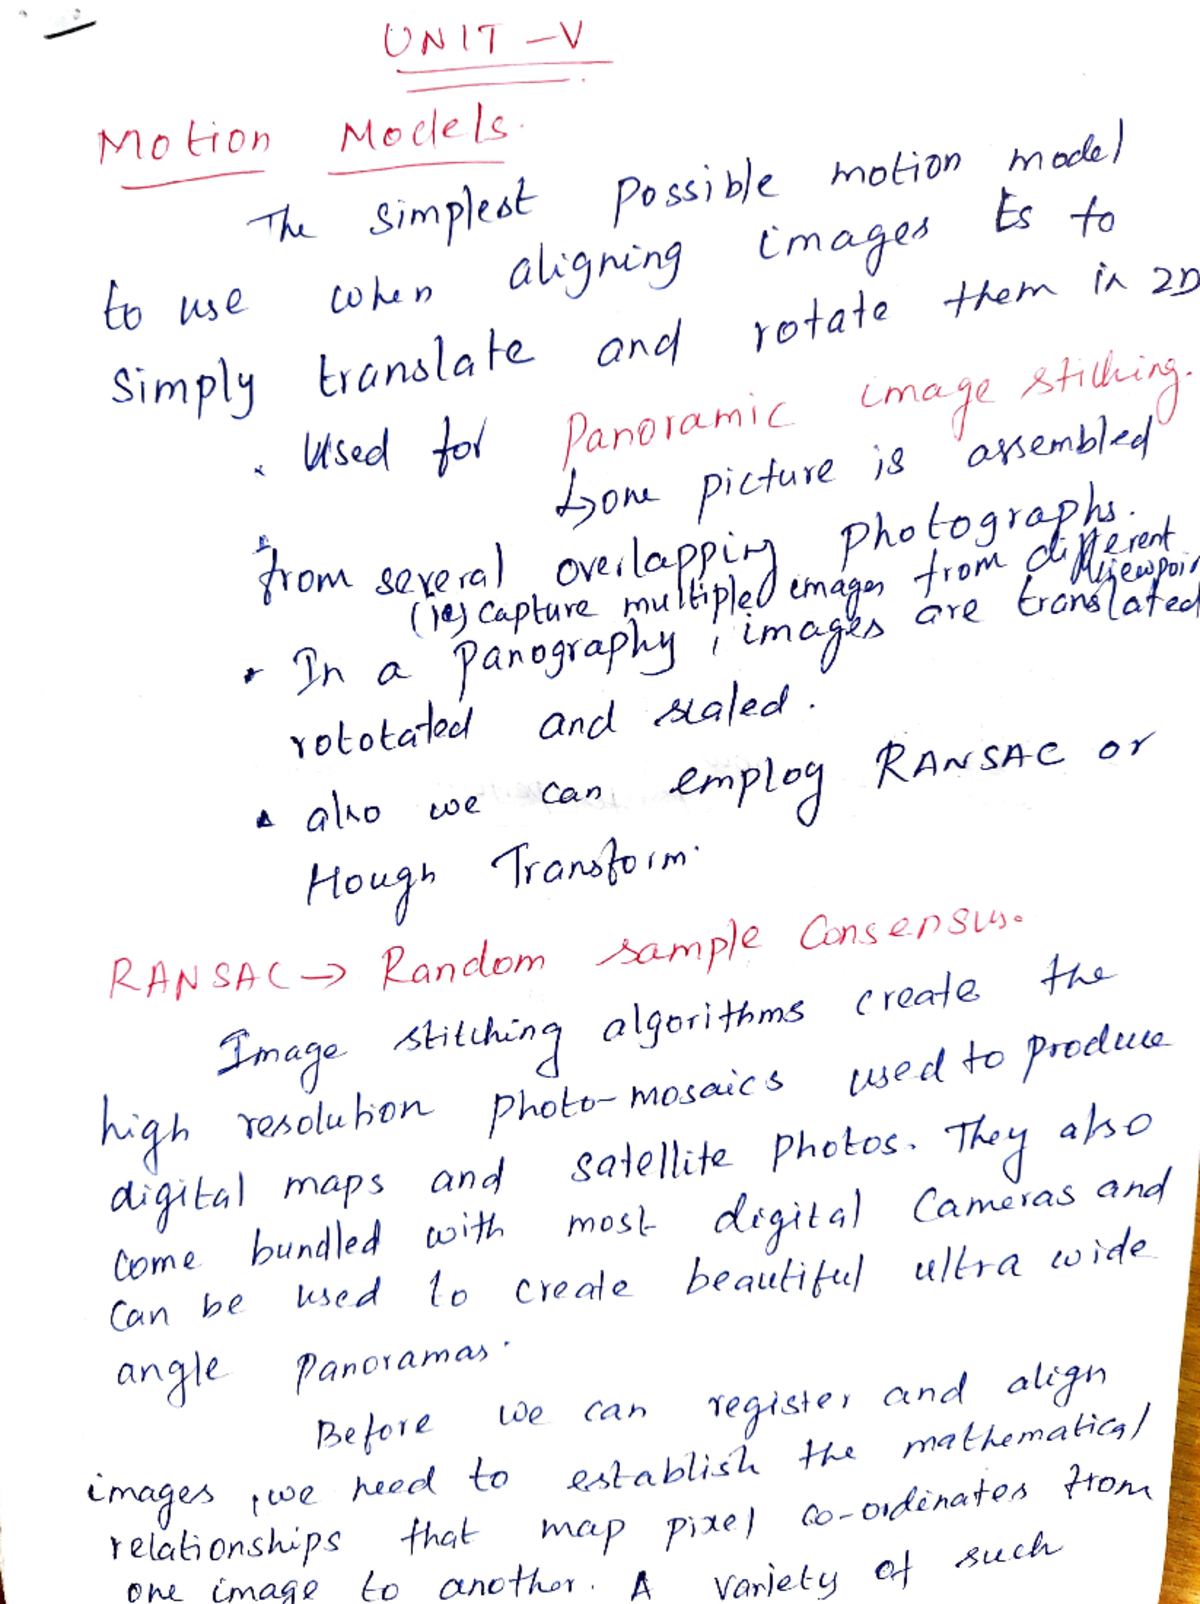 UNIT - V
Motion Models.
The simplest possible motion model
to use when aligning images is to
simply translate and rotate them in 2D
Used for Panoramic image stitching.
↳ one picture is assembled
from several overlapping photographs.
(ie) Capture multiple images from different viewpoin
In a Panography, images are translated
rototated and scaled.
also we can employ RANSAC or
Hough Transform.
RANSAC → Random sample Consensus.
Image stitching algorithms create the
high resolution photo-mosaics used to produce
digital maps and satellite photos. They also
come bundled with most digital Cameras and
Can be used to create beautiful ultra wide
angle Panoramas.
Before we can register and align
images, we need to establish the mathematical
relationships that map pixel co-ordinates from
one image to another. A variety of such